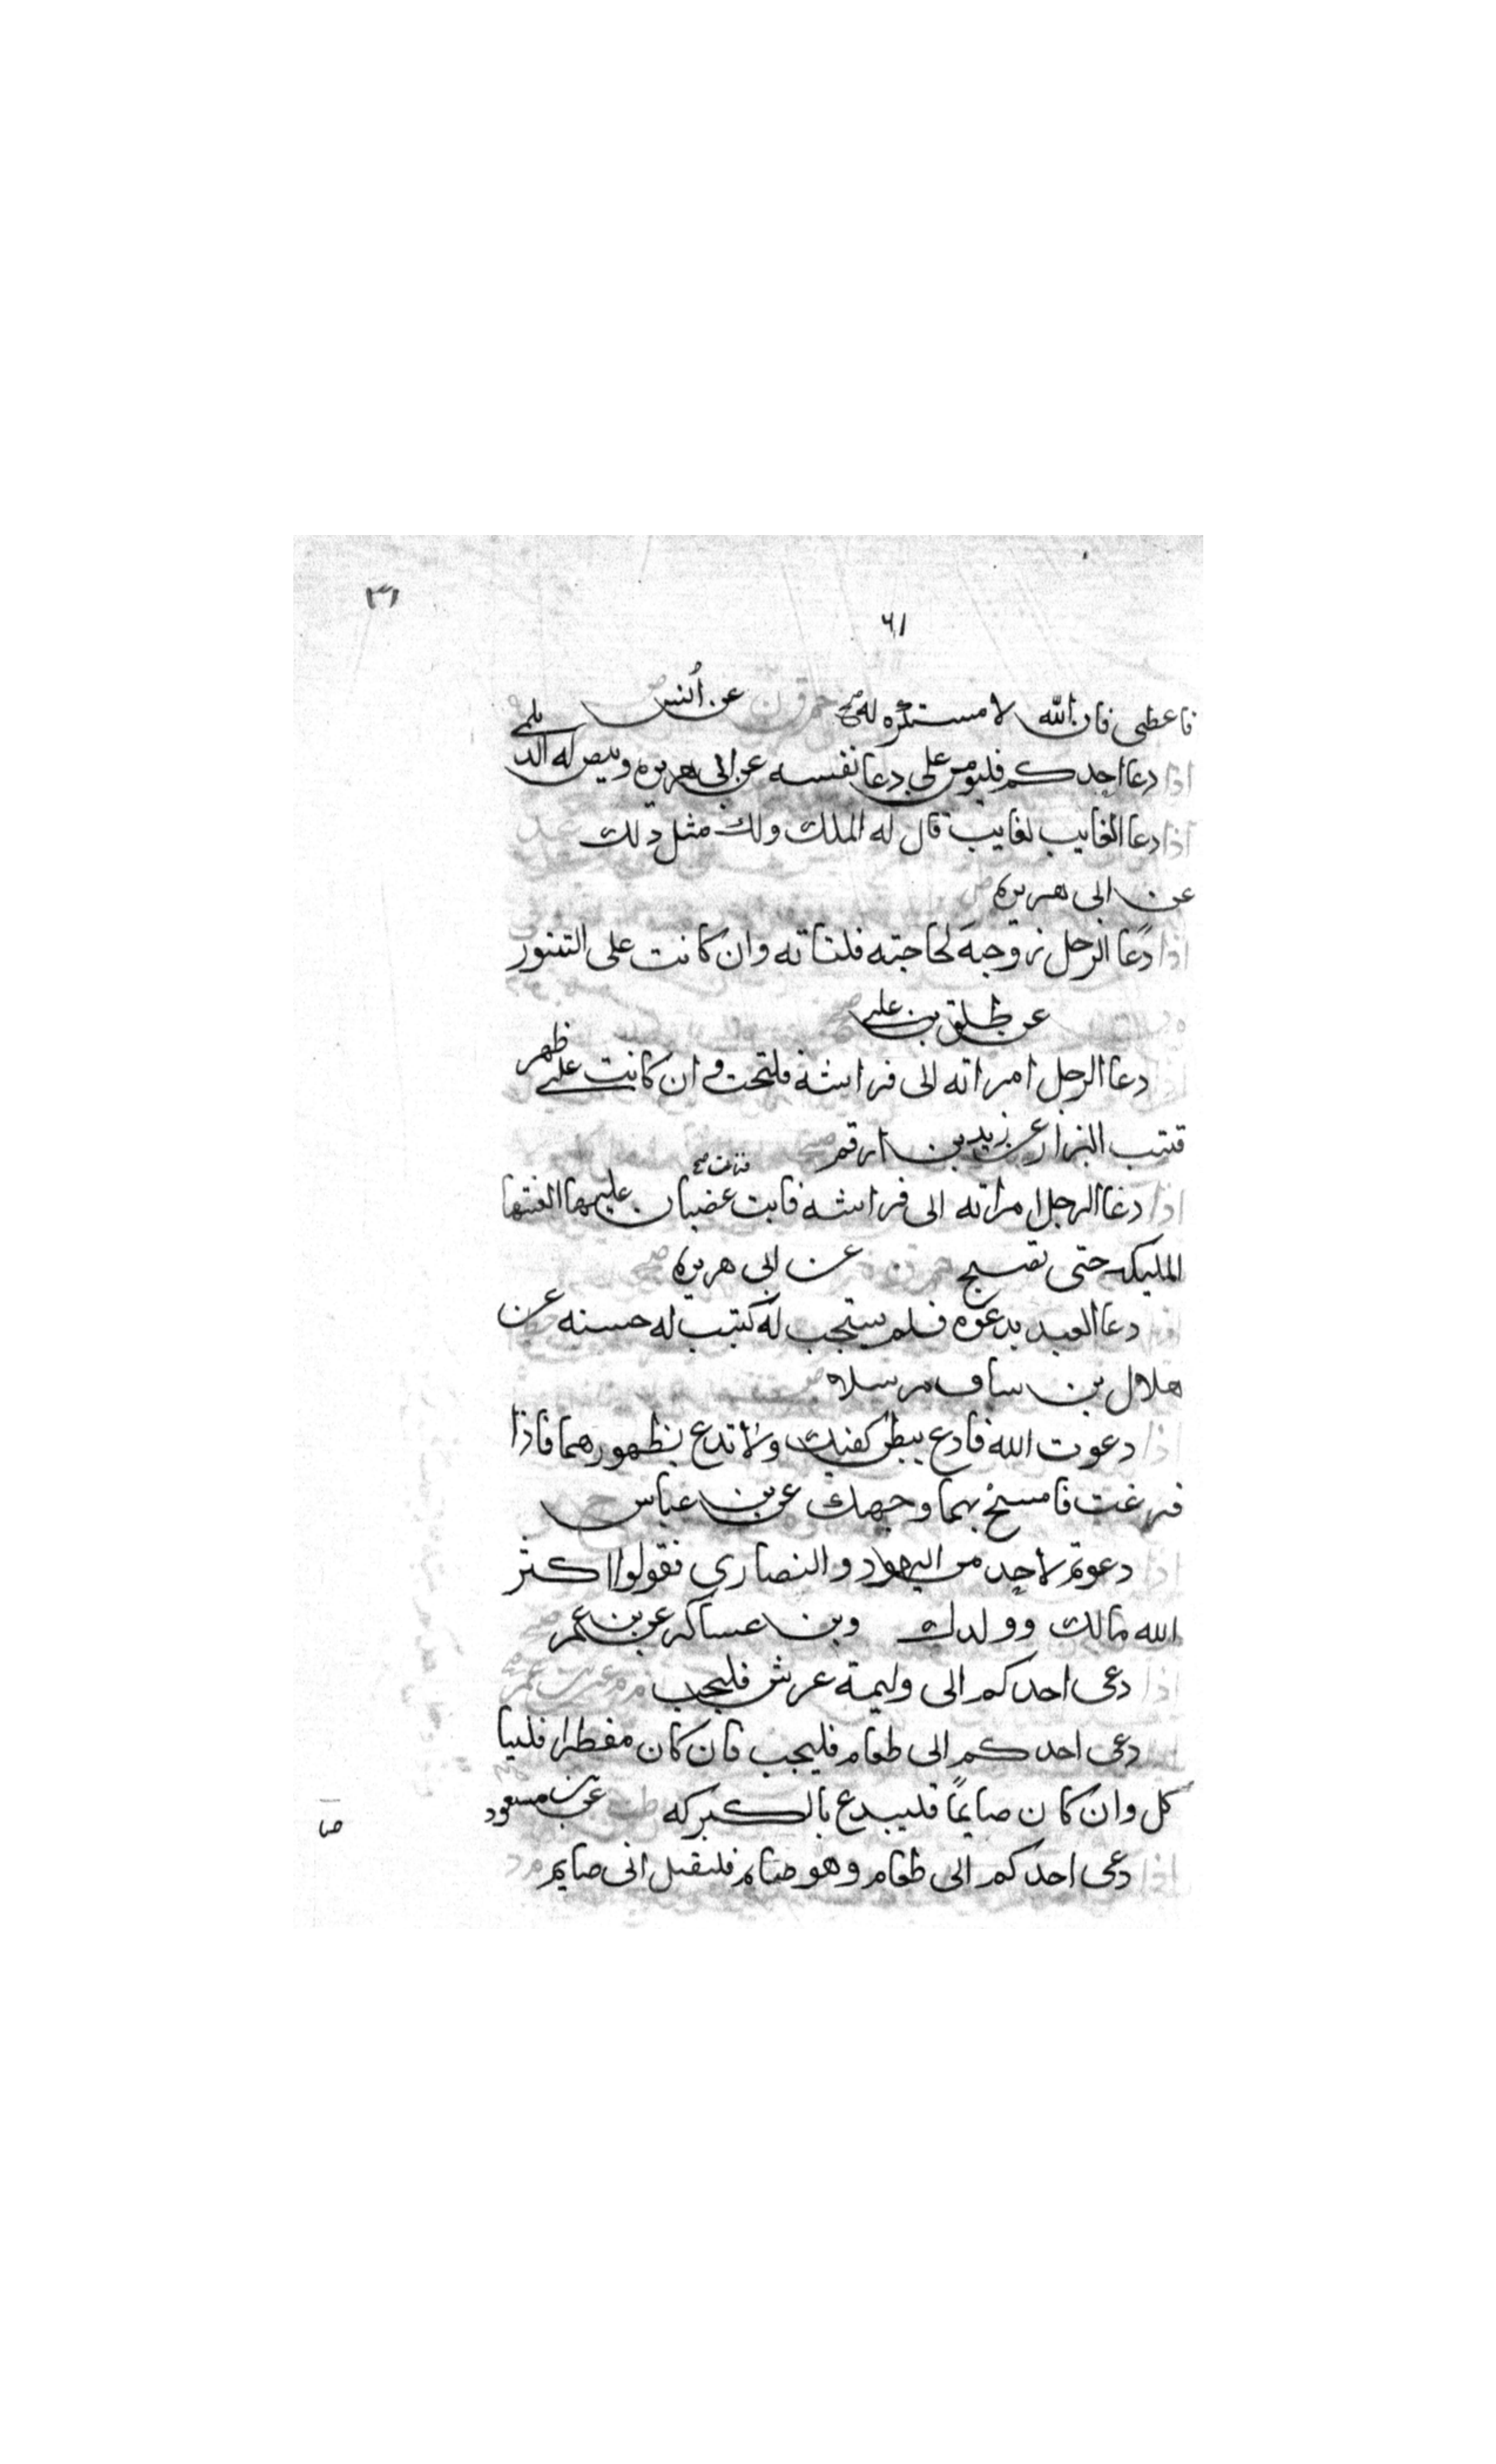 ٣١
٦١
فاعطى فان الله لا مستكره له صح حم ق ن عن أنس
اذا دعا احدكم فليومن على دعا نفسه عن ابى هريره وبيض له الد يلمى
اذا دعا الغايب لغايب قال له الملك ولك مثل ذلك
عن ابى هريره
اذا دعا الرجل زوجته لحاجته فلتاته وان كانت على التنور
عن طلق بن على
اذا دعا الرجل امراته الى فراشه فلتجب وان كانت على ظهر
قتب البزار عن زيد بن ارقم
اذا دعا الرجل امراته الى فراشه فابت غضبان عليها لعنتها
المليكه حتى تصبح حم ق د عن ابى هريره
اذا دعا العبد بدعوه فلم يستجب له كتبت له حسنه عن
هلال بن ساف مرسلا
اذا دعوت الله فادع ببطن كفيك ولا تدع بظهورهما فاذا
فرغت فامسح بهما وجهك عن بن عباس
اذا دعوتم لاحد من اليهود والنصارى فقولوا اكثر
الله مالك وولدك وبن عساكر عن بن عمر
اذا دعى احدكم الى وليمة عرس فليجب م ه عن بن عمر
دعى احدكم الى طعام فليجب فان كان مفطرا فليا
كل وان كان صايماً فليدع بالبركه طب عن بن مسعود
اذا دعى احدكم الى طعام وهو صايم فليقل انى صايم م د